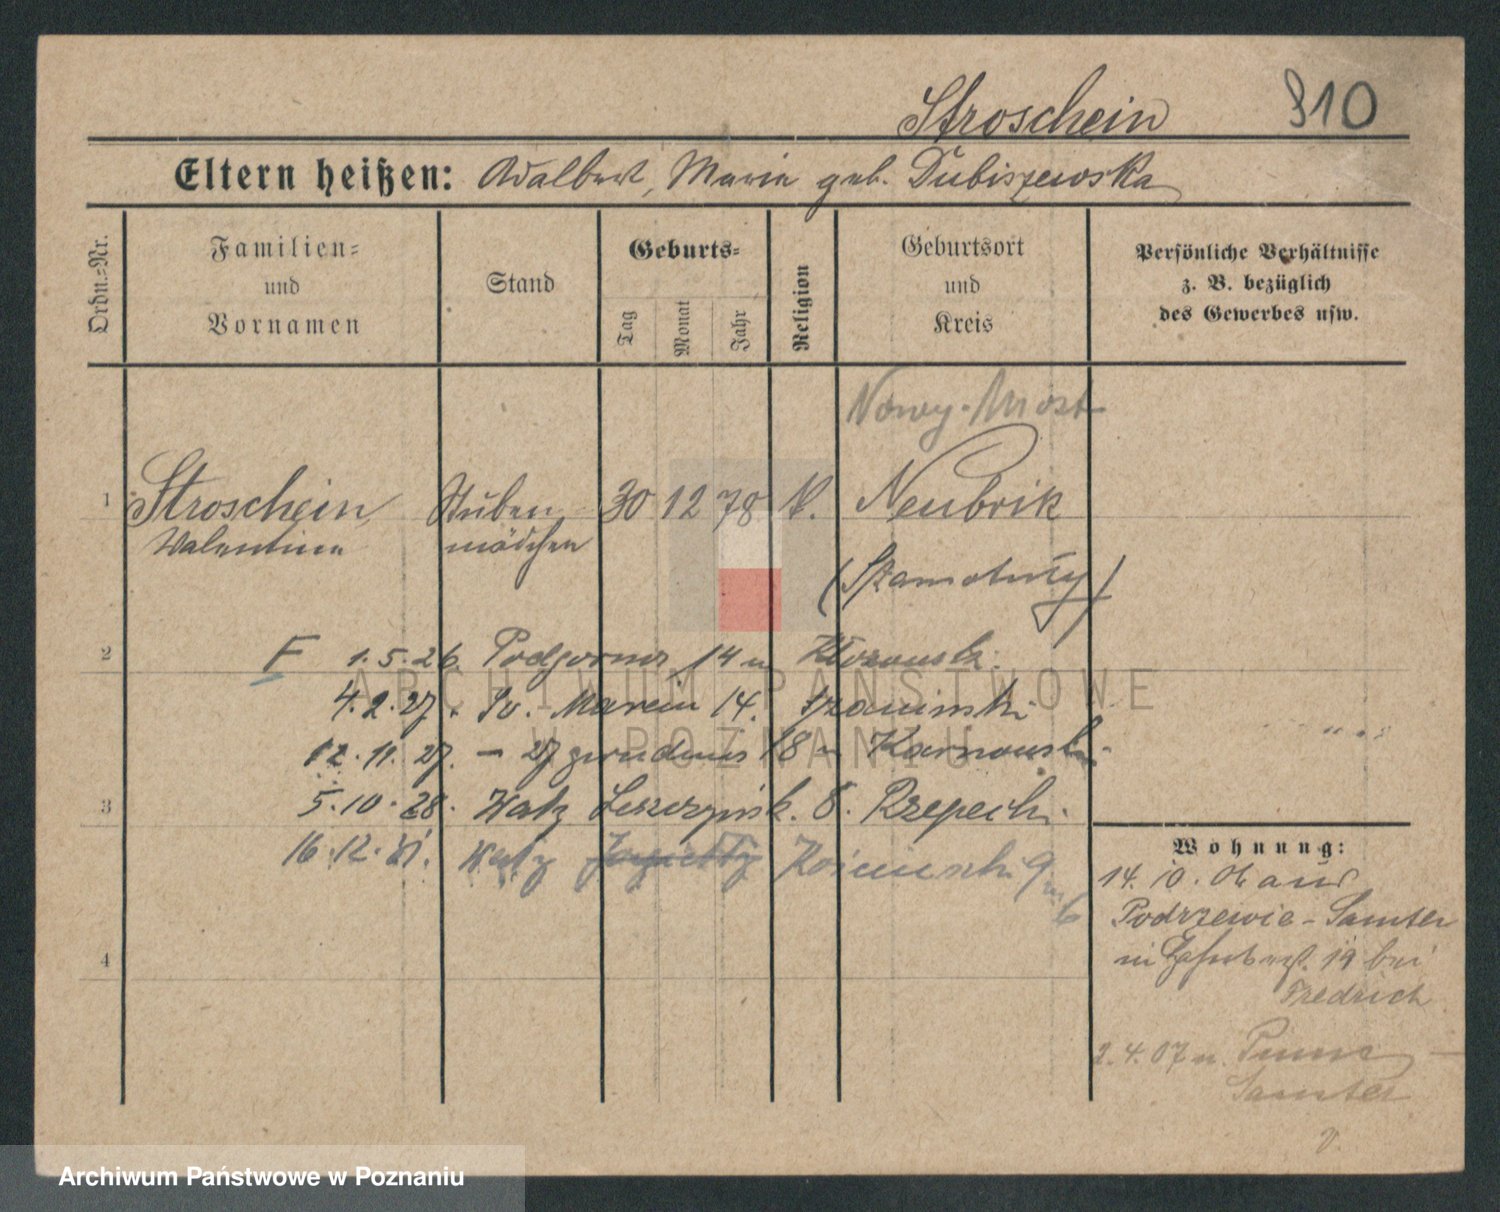 Stroschein 910
Eltern heißen: Adalbert, Maria geb. Dubiszewska
Ordn.=Nr.
Familien=
und
Vornamen
Stand
Geburts=
Tag
Monat
Jahr
Religion
Geburtsort
und
Kreis
Persönliche Verhältnisse
z. B. bezüglich
des Gewerbes usw.
Nowy-Most
1 Stroschein Stuben 30 12 78 k. Neubrik
Valentine mädchen
(Szamotuły)
2 F 1.5.26. Podgorna 14 u
4.2.27. Św. Marcin 14.
12.11.27. - 27 grudnia 18 u Karnowsk.
3 5.10.28. Rzepech.
16.12.31.
Wohnung:
14. 10. 06 aus
Podrzewie-Samter
19 bei
Fredrich
4
2.4.07 n. Pinne
Samter
ARCHIWUM PAŃSTWOWE
W POZNANIU
Archiwum Państwowe w Poznaniu